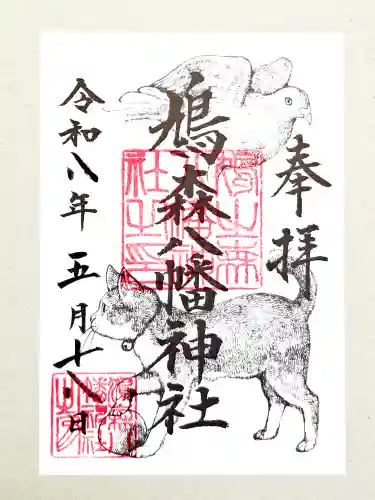 奉拝
鳩森八幡神社
令和八年五月十八日